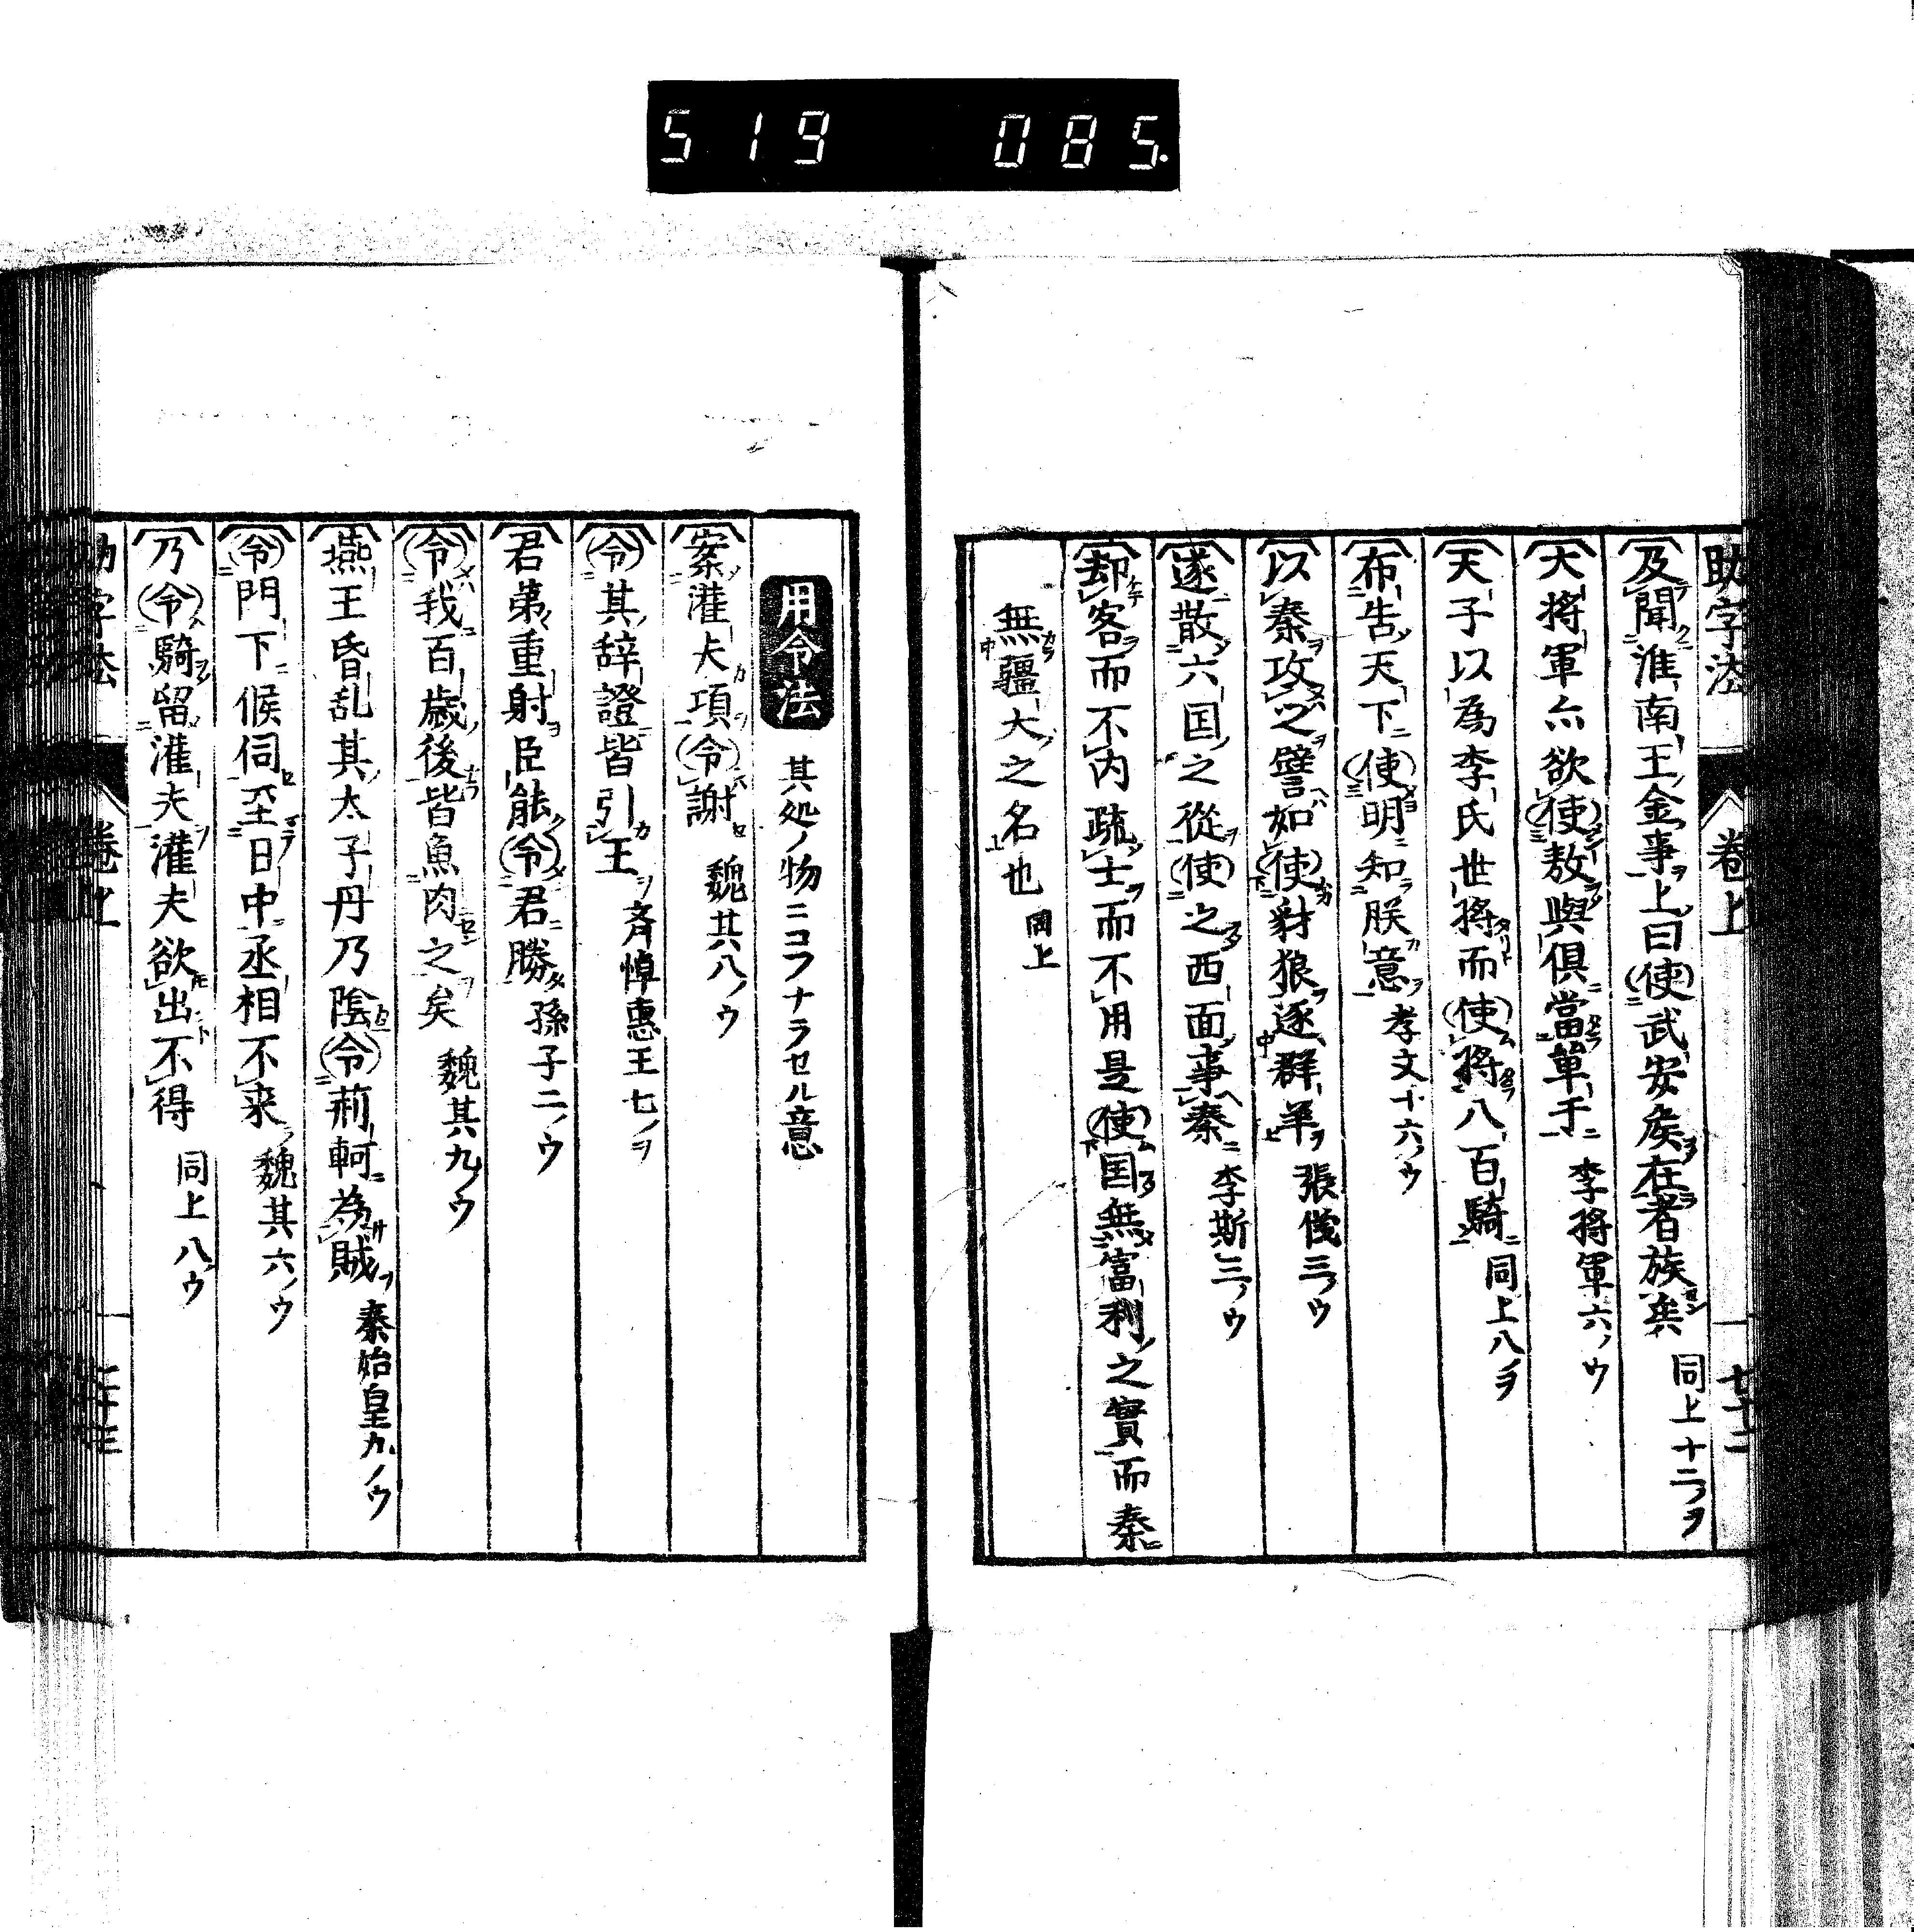 519 085.
助字法 卷上 廿二
及聞淮南王金事上曰使武安矦在者族矣 同上十二ノヲ
大將軍亦欲使敖與俱當單于 李將軍六ノウ
天子以為李氏世將而使將八百騎 同上八ノヲ
布告天下使明知朕意 孝文十六ノウ
以秦攻之譬如使豺狼逐群羊 張儀三ノウ
遂散六国之從使之西面事秦 李斯三ノウ
却客而不内疏士而不用是使国無富利之實而秦
無疆大之名也 同上
用令法 其処ノ物ニコフナラセル意
案灌夫項令謝 魏其八ノウ
令其辞證皆引王 斉悼惠王七ノヲ
君弟重射臣能令君勝 孫子二ノウ
令我百歳後皆魚肉之矣 魏其九ノウ
燕王昏乱其太子丹乃陰令荊軻為賊 秦始皇九ノウ
令門下候伺至日中丞相不来 魏其六ノウ
乃令騎留灌夫灌夫欲出不得 同上八ノウ
助字法 卷上